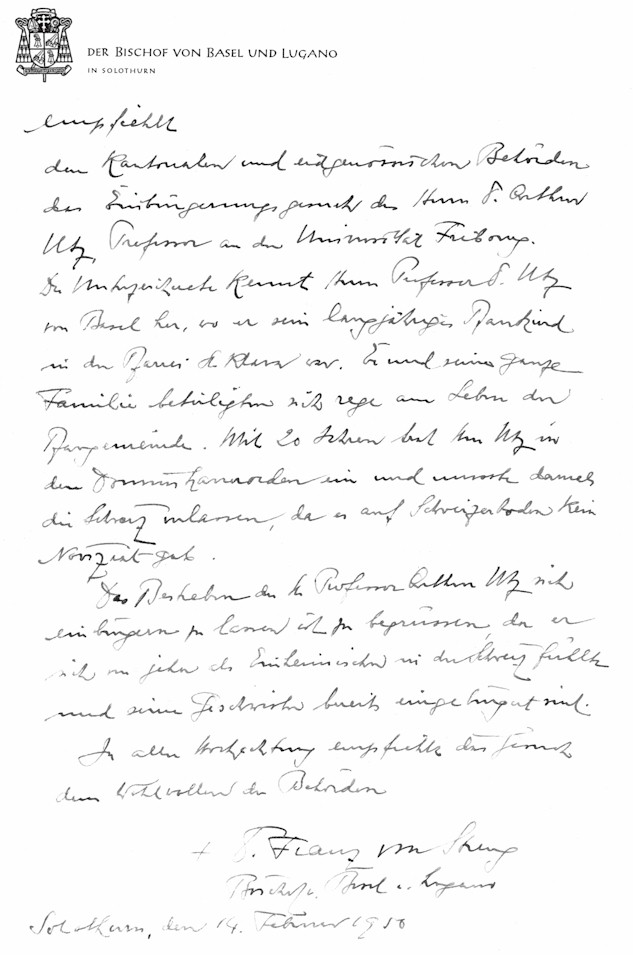 DER BISCHOF VON BASEL UND LUGANO
IN SOLOTHURN
empfiehlt
den Kantonalen und eidgenössischen Behörden
das Einbürgerungsgesuch des Herrn P. Arthur
Utz, Professor an der Universität Fribourg.
Der Unterzeichnete kennt Herrn Professor P. Utz
von Basel her, wo er sein langjähriges Pfarrkind
in der Pfarrei St. Klara war. Er und seine ganze
Familie beteiligten sich rege am Leben der
Pfarrgemeinde. Mit 20 Jahren trat Hr. Utz in
den Dominikanerorden ein und musste damals
die Schweiz verlassen, da es auf Schweizerboden kein
Noviziat gab.
Das Bestreben des Hr. Professor Arthur Utz sich
einbürgern zu lassen ist zu begrüssen, da er
sich von jeher als Einheimischer in der Schweiz fühlte
und seine Geschwister bereits eingebürgert sind.
In aller Hochachtung empfiehlt das Gesuch
dem Wohlwollen der Behörden
+ Franz von Streng
Bischof v. Basel u. Lugano
Solothurn, den 14. Februar 1950